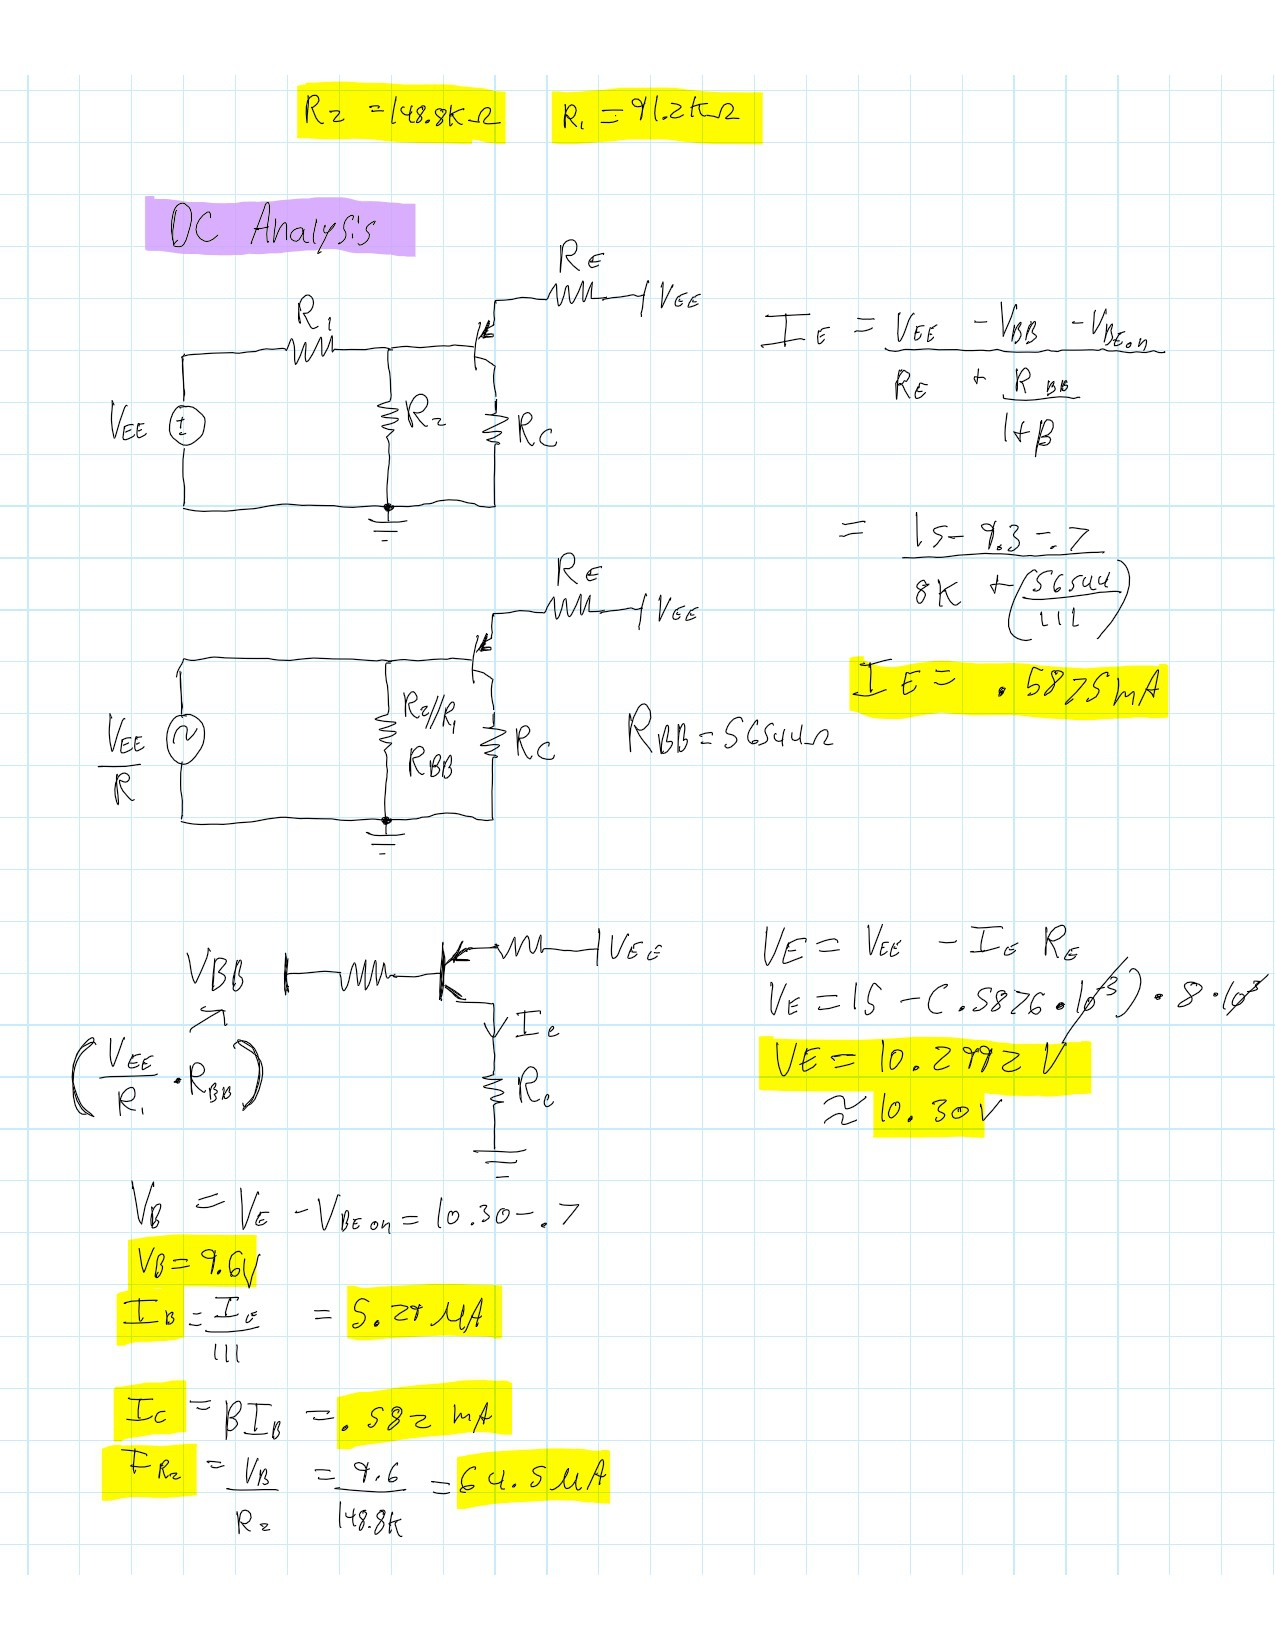 R2 = 148.8KΩ R1 = 91.2KΩ
DC Analysis
RE
VEE
R1
VEE
±
R2
RC
IE = VEE - VBB - VBEon
RE + RBB
1+β
= 15 - 9.3 - .7
8K + (56544
111)
IE = .5875mA
RE
VEE
VEE
R
R2//R1
RBB
RC
RBB = 56544Ω
VBB
VEE
(VEE
R1 · RBB)
Ic
Rc
VE = VEE - IE RE
VE = 15 - (.5876 · 10^-3) · 8 · 10^3
VE = 10.2992 V
≈ 10.30V
VB = VE - VBEon = 10.30 - .7
VB = 9.6V
IB = IE = 5.29 μA
111
IC = βIB = .582 mA
IR2 = VB = 9.6 = 64.5 μA
R2 148.8K